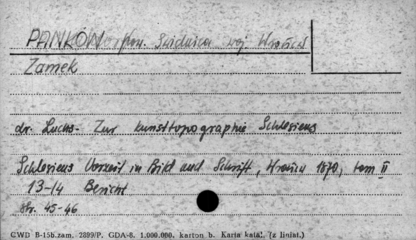 PANKÓW pow. Świdnica woj. Wrocław
Zamek
dr. Luchs - Zur kunsttopographie Schlesiens
Schlesiens Vorzeit in Bild und Schrift, 1870, tom II
13-14 Bericht
str. 45-46
CWD B-15b.zam. 2399/P. GDA-8. 1.000.000. karton b. Karta katal. (z liniat.)